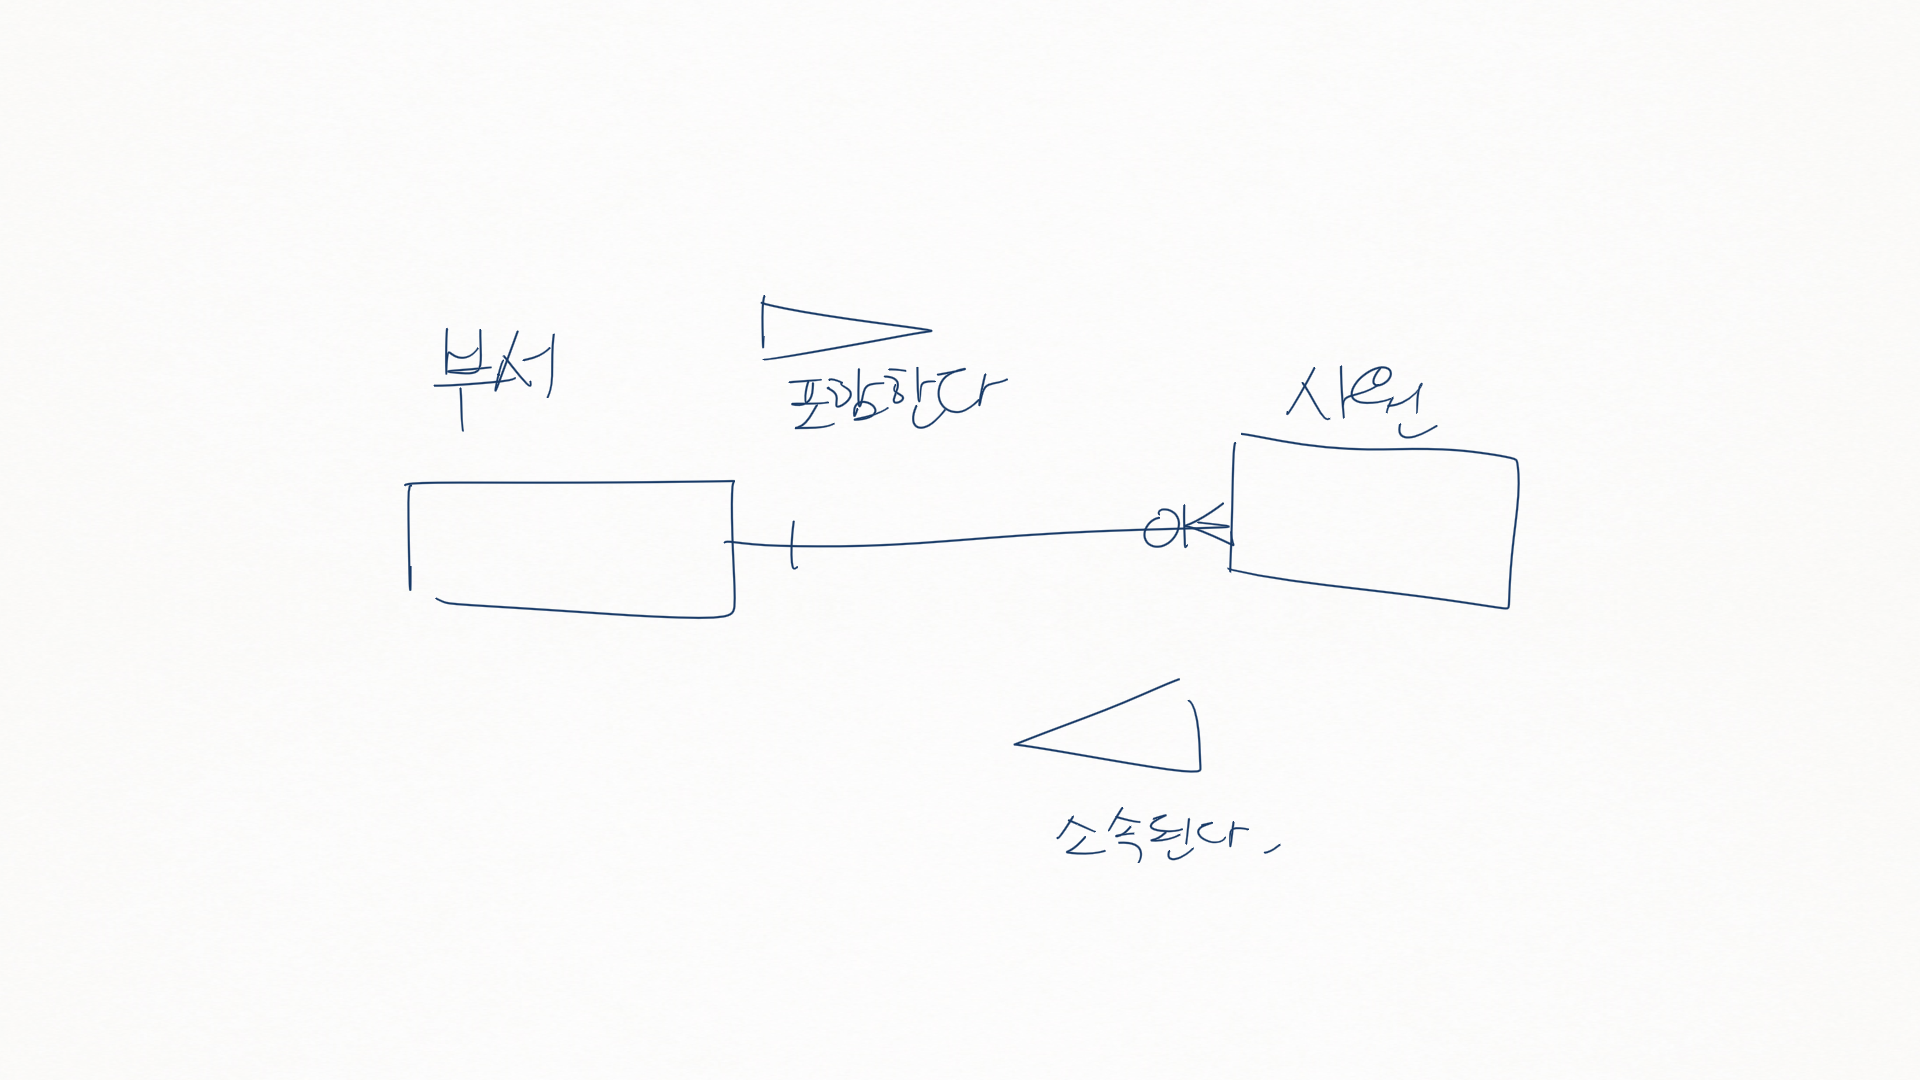 부서
포함한다
사원
소속된다.